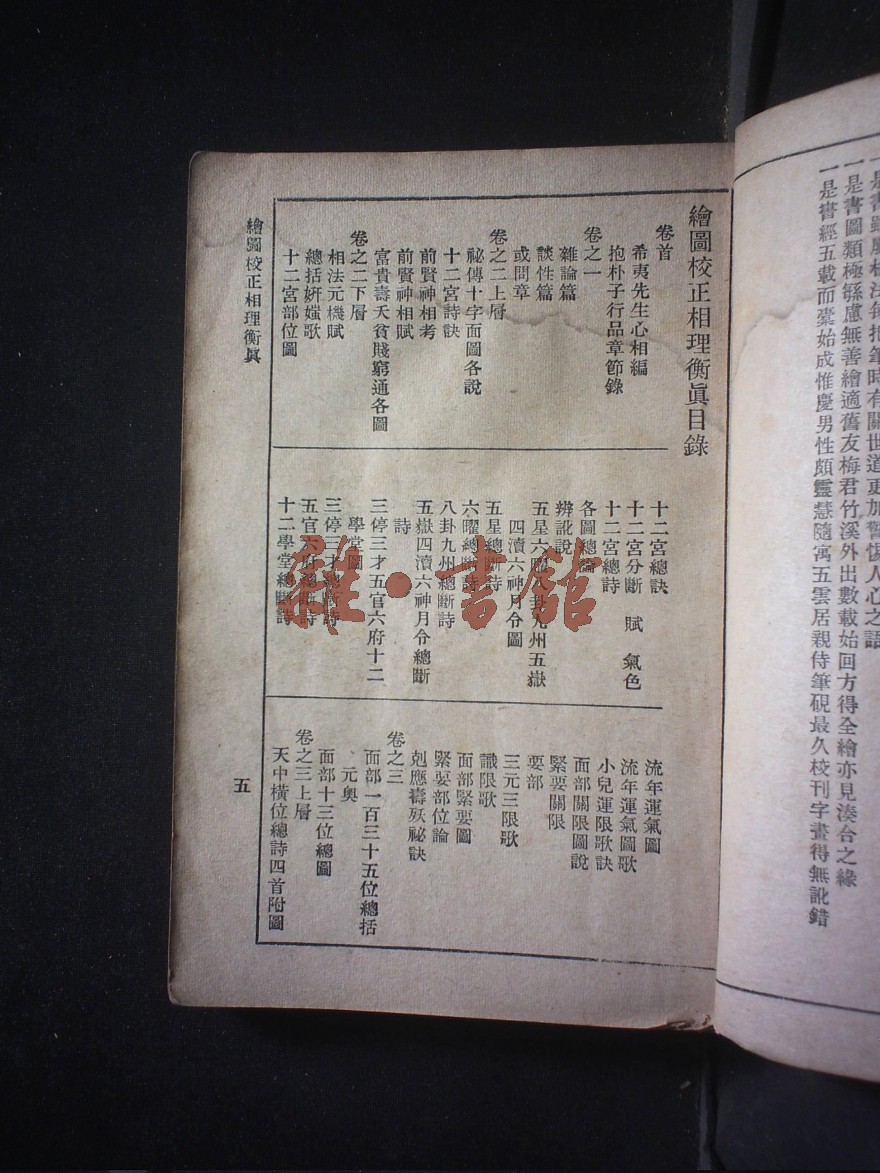 一是書雖屬相法每把筆時有關世道更加警惕人心之語
一是書圖類極緐慮無善繪適舊友梅君竹溪外出數載始回方得全繪亦見湊合之緣
一是書經五載而藁始成惟慶男性頗靈慧隨寓五雲居親侍筆硯最久校刊字畫得無訛錯
繪圖校正相理衡眞目錄
卷首
希夷先生心相編
抱朴子行品章節錄
卷之一
雜論篇
談性篇
或問章
卷之二上層
祕傳十字面圖各說
十二宮詩訣
前賢神相考
前賢神相賦
富貴壽夭貧賤窮通各圖
卷之二下層
相法元機賦
總括妍媸歌
十二宮部位圖
十二宮總訣
十二宮分斷 賦 氣色
十二宮總詩
各圖總論
辨訛說
五星六曜八卦九州五嶽
四瀆六神月令圖
五星總斷詩
六曜總斷詩
八卦九州總斷詩
五嶽四瀆六神月令總斷
詩
三停三才五官六府十二
學堂圖
三停三才總斷詩
五官六府總斷詩
十二學堂總斷詩
流年運氣圖
流年運氣圖歌
小兒運限歌訣
面部關限圖說
緊要關限
要部
三元三限歌
識限歌
面部緊要圖
緊要部位論
剋應壽殀祕訣
卷之三
面部一百三十五位總括
元奧
面部十三位總圖
卷之三上層
天中橫位總詩四首附圖
繪圖校正相理衡眞
五
雜·書館